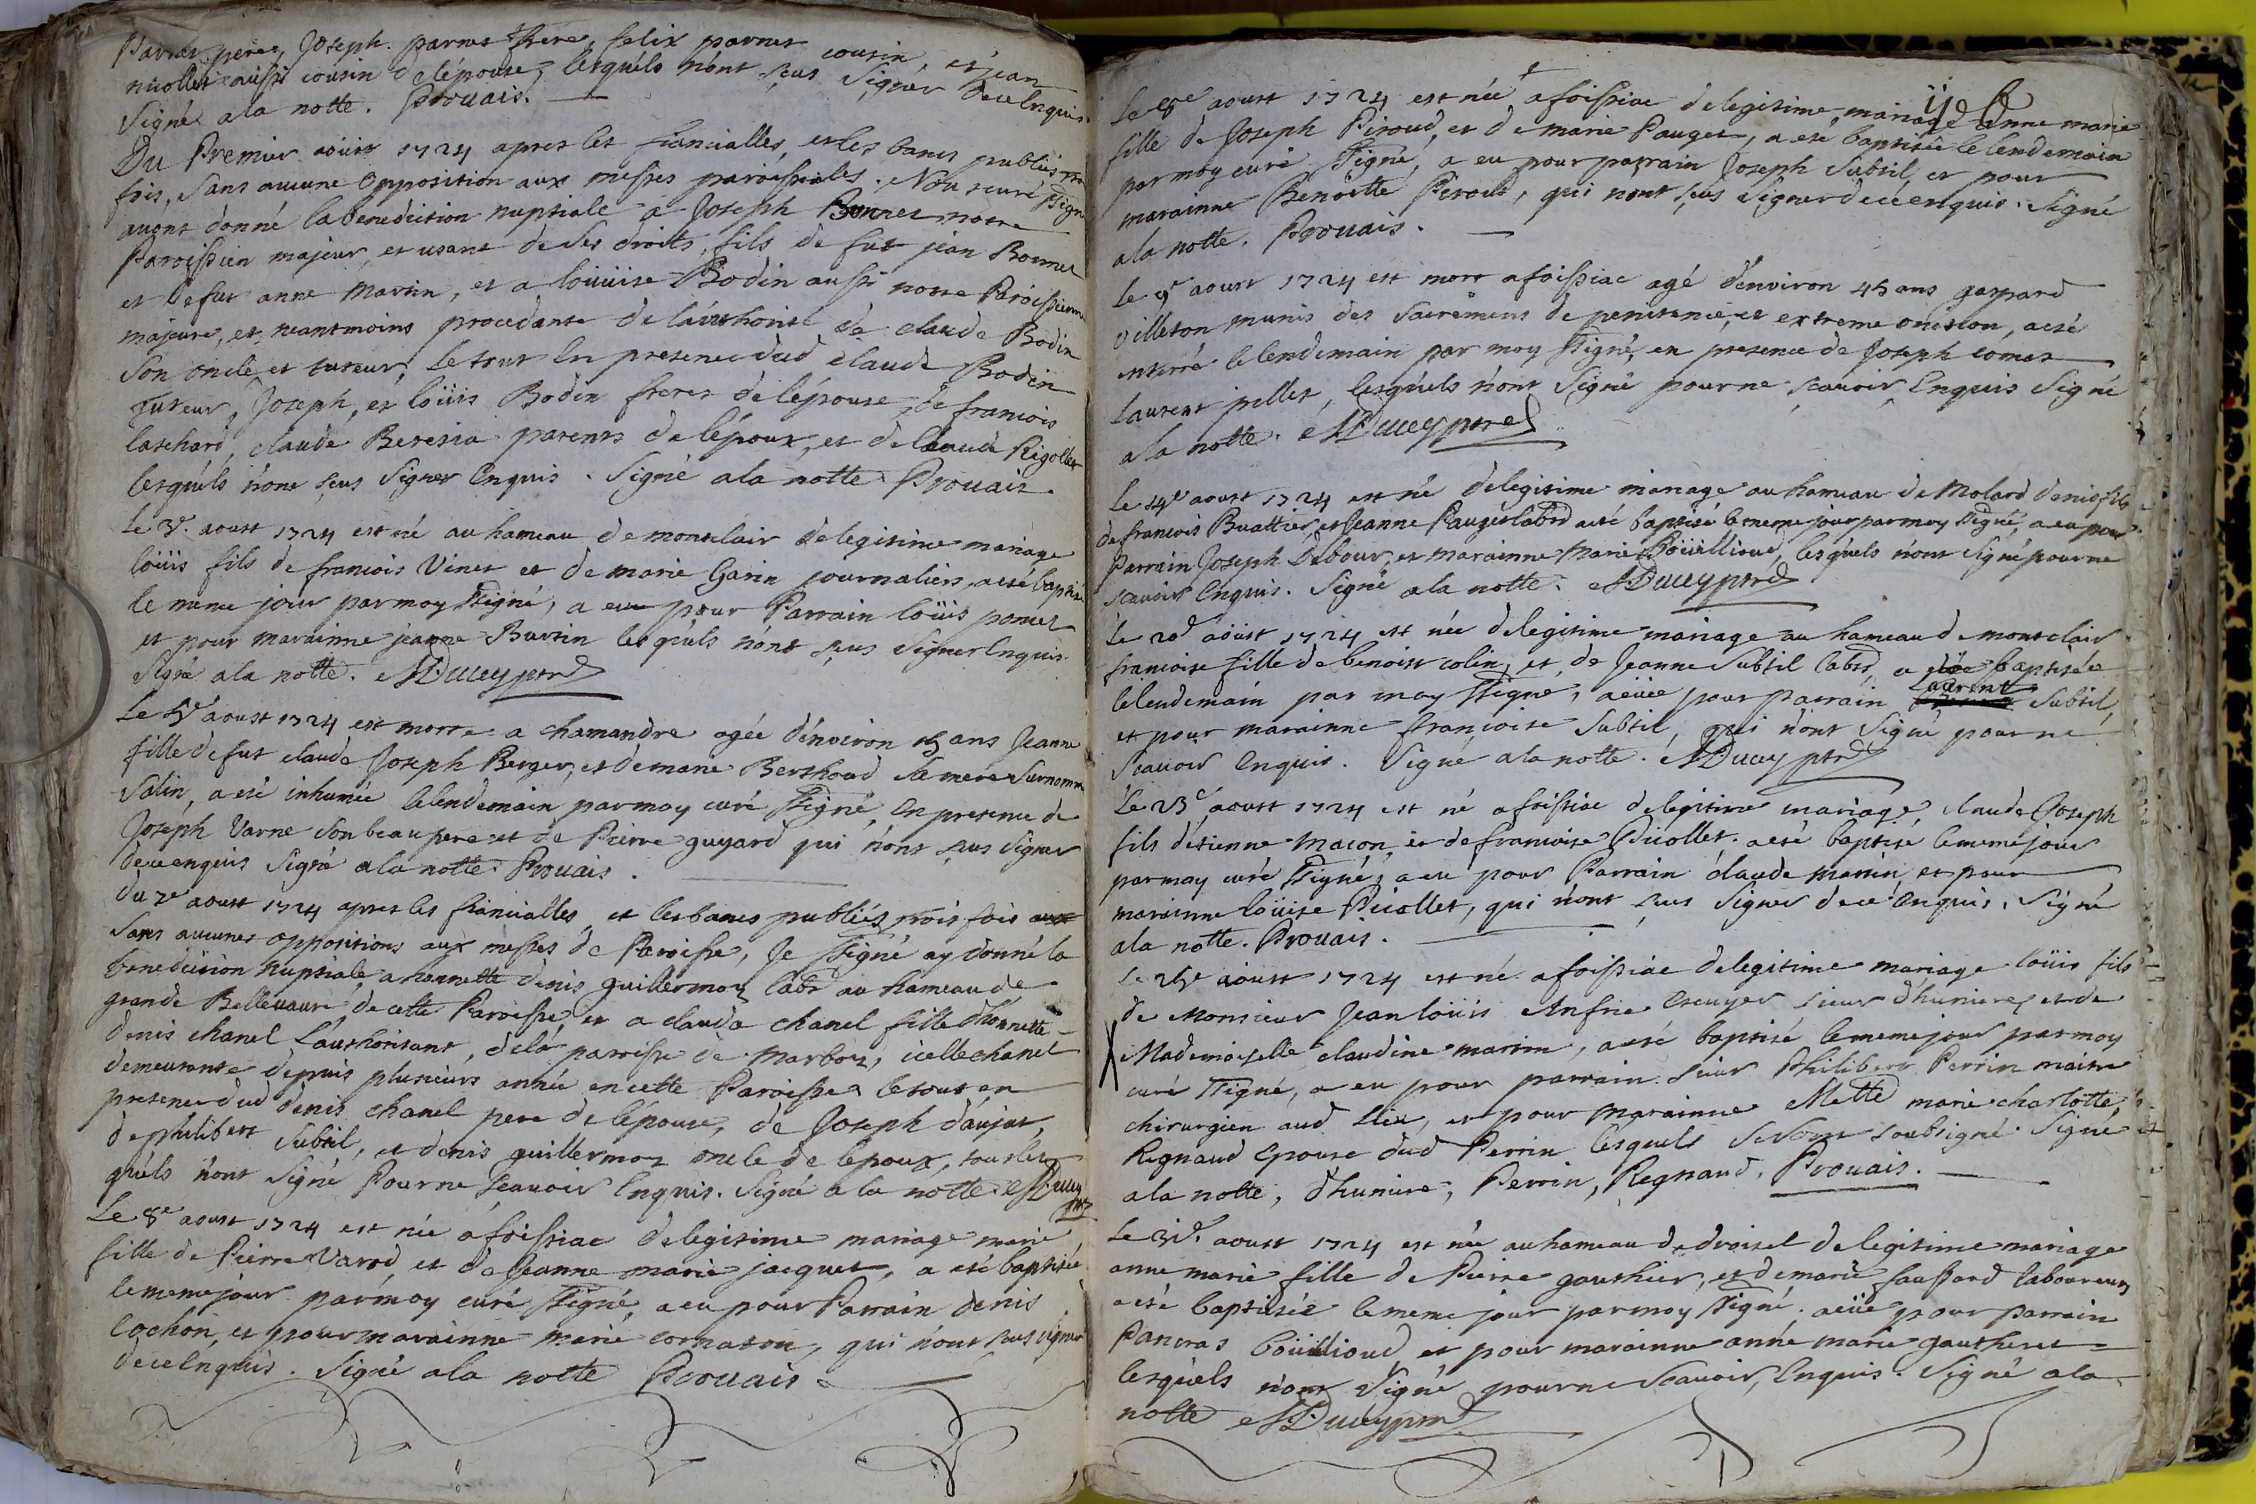 pere, Joseph parnet frere, felix parnet cousin, et jean
nicollet aussi cousin de lépouse, lesquéls nónt sçus signer dece Enquis
Signé ala notte. Prouais.
Du Premier aoust 1724 apres les fiancialles, et les bancs publiés
fois, sans aucune opposition aux messes paroissiales. Nous curé ssigné
avons donné la benediction nuptiale a Joseph Bonnet notre
Paroissien majeur, et usant de ses droits, fils de fut jean Bonnet
et defut anne Martin, et a loüuise Bodin aussi notre Paroissienne
majeure, et neantmoins procedante de láuthorité de claude Bodin
son oncle et tuteur, le tout En presence dud claude Bodin
Tuteur, Joseph, et loüis Bodin freres de lépouse, de francois
claude Beresia parents de lépoux, et de claude Rigollet
lesquéls nónt sçus signer Enquis. Signé ala notte Prouais.
Le 3e. aoust 1724 est né au hameau de montclair de legitime mariage
loüis fils de francois Vinet et de marie Garin journaliers, a eté baptisé
le meme jour par moy ssigné, a eu pour Parrain loüis ponet
et pour marainne jeanne Burtin lesquéls nónt sçus signer Enquis.
Signé ala notte. Ducey ptre
Le 5e aoust 1724 est morte a chamandre agée dénviron ans Jeanne
fille defut claude Joseph Berger, et de marie Berthoud sa mere surnommé
Salin, a eté inhumée le lendemain par moy curé ssigné, En presence de
Joseph Varne son beaupere et de Pierre guyard qui nónt sçus signer
dece enquis Signé ala notte Prouais.
du 7e aoust 1724 apres les fiancialles, et les bancs publiés trois fois
sans aucunes oppositions aux messes de Paroisse, Je ssigné ay donné la
benediction nuptiale, a honnette denis guillermoz labr au hameau de
grande Bellevavre de cette Paroisse, et a clauda chanel fille dhonnette
denis chanel láuthorisant, déla paroisse de Marboz, icelle chanel
demeurante depuis plusieurs année en cette Paroisse le tout en
presence dud denis chanel pere de lépouse, de Joseph daujat,
de philibert Subtil, et denis guillermoz oncle de lepoux, tous les
quéls nónt signé Pour ne sçauoir Enquis. Signé a la notte Ducey
ptre
Le 8e aoust 1724 est née a foissiac de legitime mariage marie
fille de Pierre Varod, et de Jeanne marie jacquet, a eté baptisée
le meme jour par moy curé ssigné, a eu pour Parrain denis
cochon, et pour marainne marie cornaton, qui nónt sçus signer
dece Enquis. Signé ala notte Prouais.
Le 8e aoust 1724 est née a foissiac de legitime mariage anne marie
fille de Joseph Piroud, et de marie Pauget, a eté baptisée le lendemain
par moy curé ssigné, a eu pour parrain Joseph Subtil, et pour
marainne Benoitte Piroud, qui nont sçus signer dece enquis. Signé
ala notte. Prouais.
Le 9e aoust 1724 est mort a foissiac agé dénviron 45 ans gaspard
villeton munis des sacremens de penitence, et extreme onction, a eté
enterré le lendemain par moy ssigné, en presence de Joseph comas
Laurent pillet, lesquéls nónt signé pour ne scavoir Enquis Signé
ala notte. Ducey ptre
Le 14e aoust 1724 est né de legitime mariage au hameau de Molard denis fils
de francois Buattier, et Jeanne Pauget labrs a eté baptisé le meme jour par moy ssigné, a eu pour
Parrain Joseph Debour, et marainne Marie Boüillioud, lesquéls nónt signé pour ne
scauoir Enquis. Signé ala notte. Ducey ptre
Le 20e aoust 1724 est née de legitime mariage au hameau de montclair
francoise fille de benoist colin, et de Jeanne Subtil labrs, a baptisée
le lendemain par moy ssigné, a eüe pour parrain Laurent Subtil,
et pour marainne francoise Subtil, qui nónt signé pour ne
scauoir Enquis. Signé ala notte. Ducey ptre
Le 23e aoust 1724 est né a foissiac de legitime mariage, claude Joseph
fils détienne Macon, et de francoise Picollet. a eté baptisé le meme jour
par moy curé ssigné, a eu pour Parrain claude martin et pour
marainne loüise Picollet, qui nónt sçus signer dece Enquis, Signé
ala notte. Prouais.
Le 25e aoust 1724 est né a foissiac de legitime mariage loüis fils
de Monsieur Jean loüis Anfrie Escuyer sieur dhuniere, et de
Mademoiselle claudine martin, a eté baptisé le meme jour par moy
curé ssigné, a eu pour parrain sieur Philibert Perrin maitre
chirurgien aud lieu, et pour marainne Mette marie charlotte
Regnaud Epouse dud Perrin lesquels se sont soubsigné. Signé
ala notte, dhuniere, Perrin, Regnaud, Prouais.
Le 31e. aoust 1724 est née au hameau de droisel de legitime mariage
anne marie fille de Pierre gauthier, et de marie laboureurs
a eté baptisée le meme jour par moy ssigné. a eüe pour parrain
Pancras Boüillioud, et pour marainne anne marie gautheret
lesquéls nónt signé pour ne scauoir, Enquis. Signé ala
notte Ducey ptre